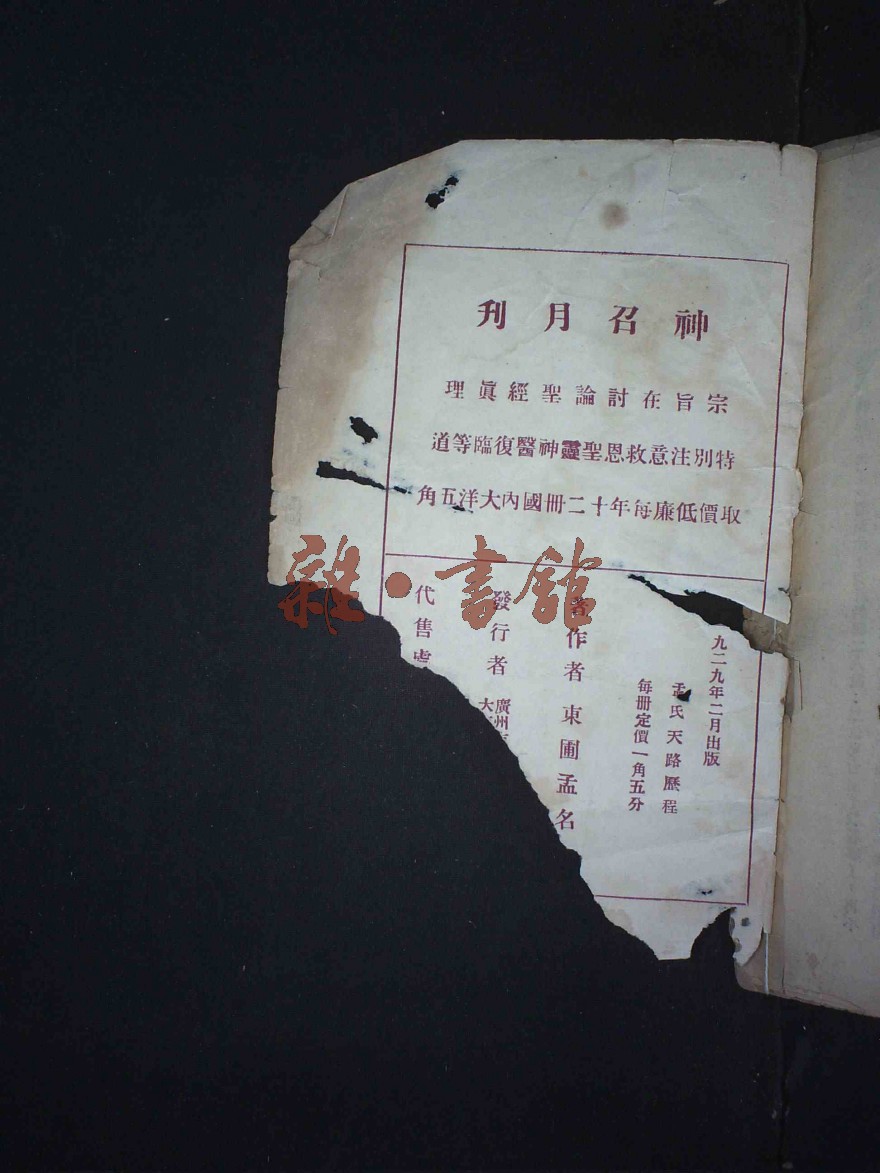 神召月刋
宗旨在討論聖經眞理
特別注意救恩聖靈神醫復臨等道
取價低廉每年十二冊國內大洋五角
九二九年二月出版
孟氏天路歷程
每册定價一角五分
著作者 東圃孟名
發行者 廣州
大
代售處
雜·書館